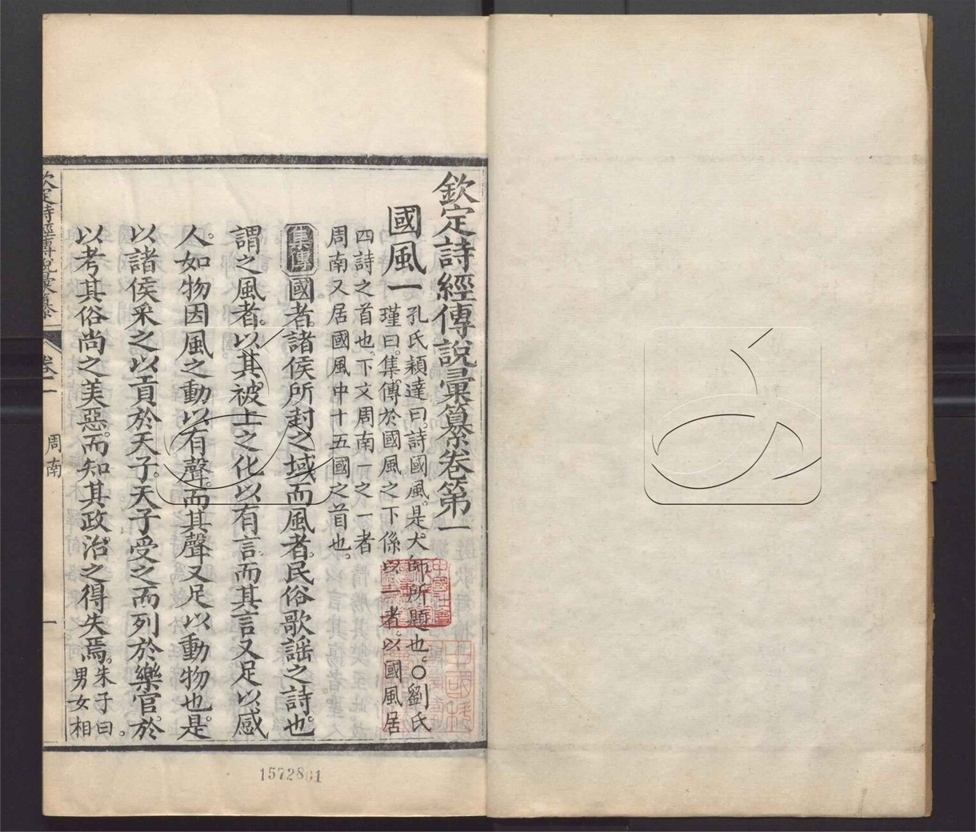 欽定詩經傳說彙纂卷第一
國風一
孔氏穎達曰。詩國風。是大師所題也。○劉氏
瑾曰。集傳於國風之下係以一者。以國風居
四詩之首也。下文周南一之一者
周南又居國風中十五國之首也。
集傳國者。諸侯所封之域。而風者。民俗歌謠之詩也。
謂之風者。以其被上之化以有言。而其言又足以感
人。如物因風之動以有聲。而其聲又足以動物也。是
以諸侯采之以貢於天子。天子受之而列於樂官。於
以考其俗尚之美惡。而知其政治之得失焉。
朱子曰。
男女相
欽定詩經傳說彙纂
卷一
周南
一
1572881